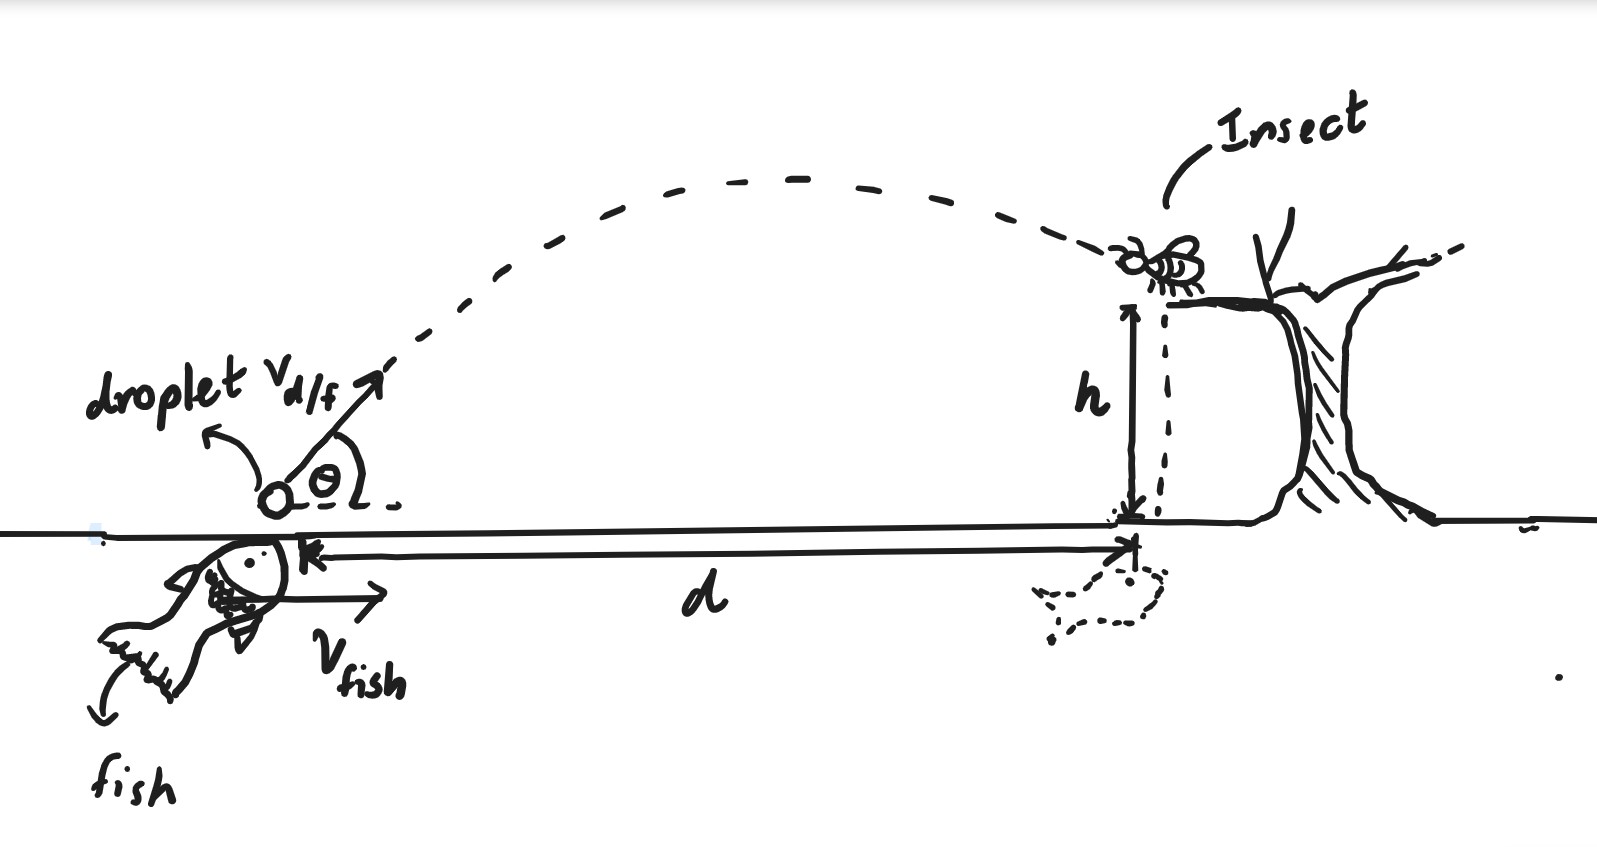 Insect
droplet
V d/f
θ
h
d
V fish
fish